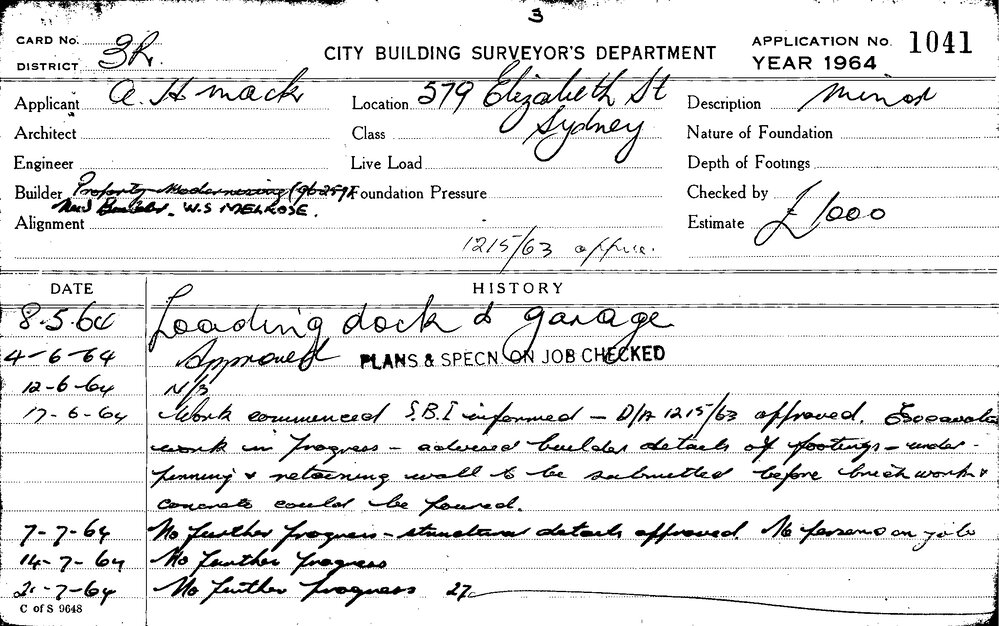 3
CARD No. CITY BUILDING SURVEYOR'S DEPARTMENT APPLICATION No. 1041
DISTRICT 3R. YEAR 1964
Applicant A. H Mack Location 579 Elizabeth St Description Minor
Architect Class Sydney Nature of Foundation
Engineer Live Load Depth of Footings
Builder Property Modernising Foundation Pressure Checked by
New Builder. W.S MELROSE.
Alignment Estimate £1000
1215/63 appr.
DATE HISTORY
8.5.64 Loading dock & garage
4-6-64 Approved PLANS & SPECN ON JOB CHECKED
12-6-64 N/B
17-6-64 Work commenced S.B.I informed – D/A 1215/63 approved. Excavation
work in progress – advised builder details of footings – under-
pinning & retaining wall to be submitted before brickwork &
concrete could be poured.
7-7-64 No further progress – structural details approved No persons on job
14-7-64 No further progress
21-7-64 No further progress 27
C of S 9648